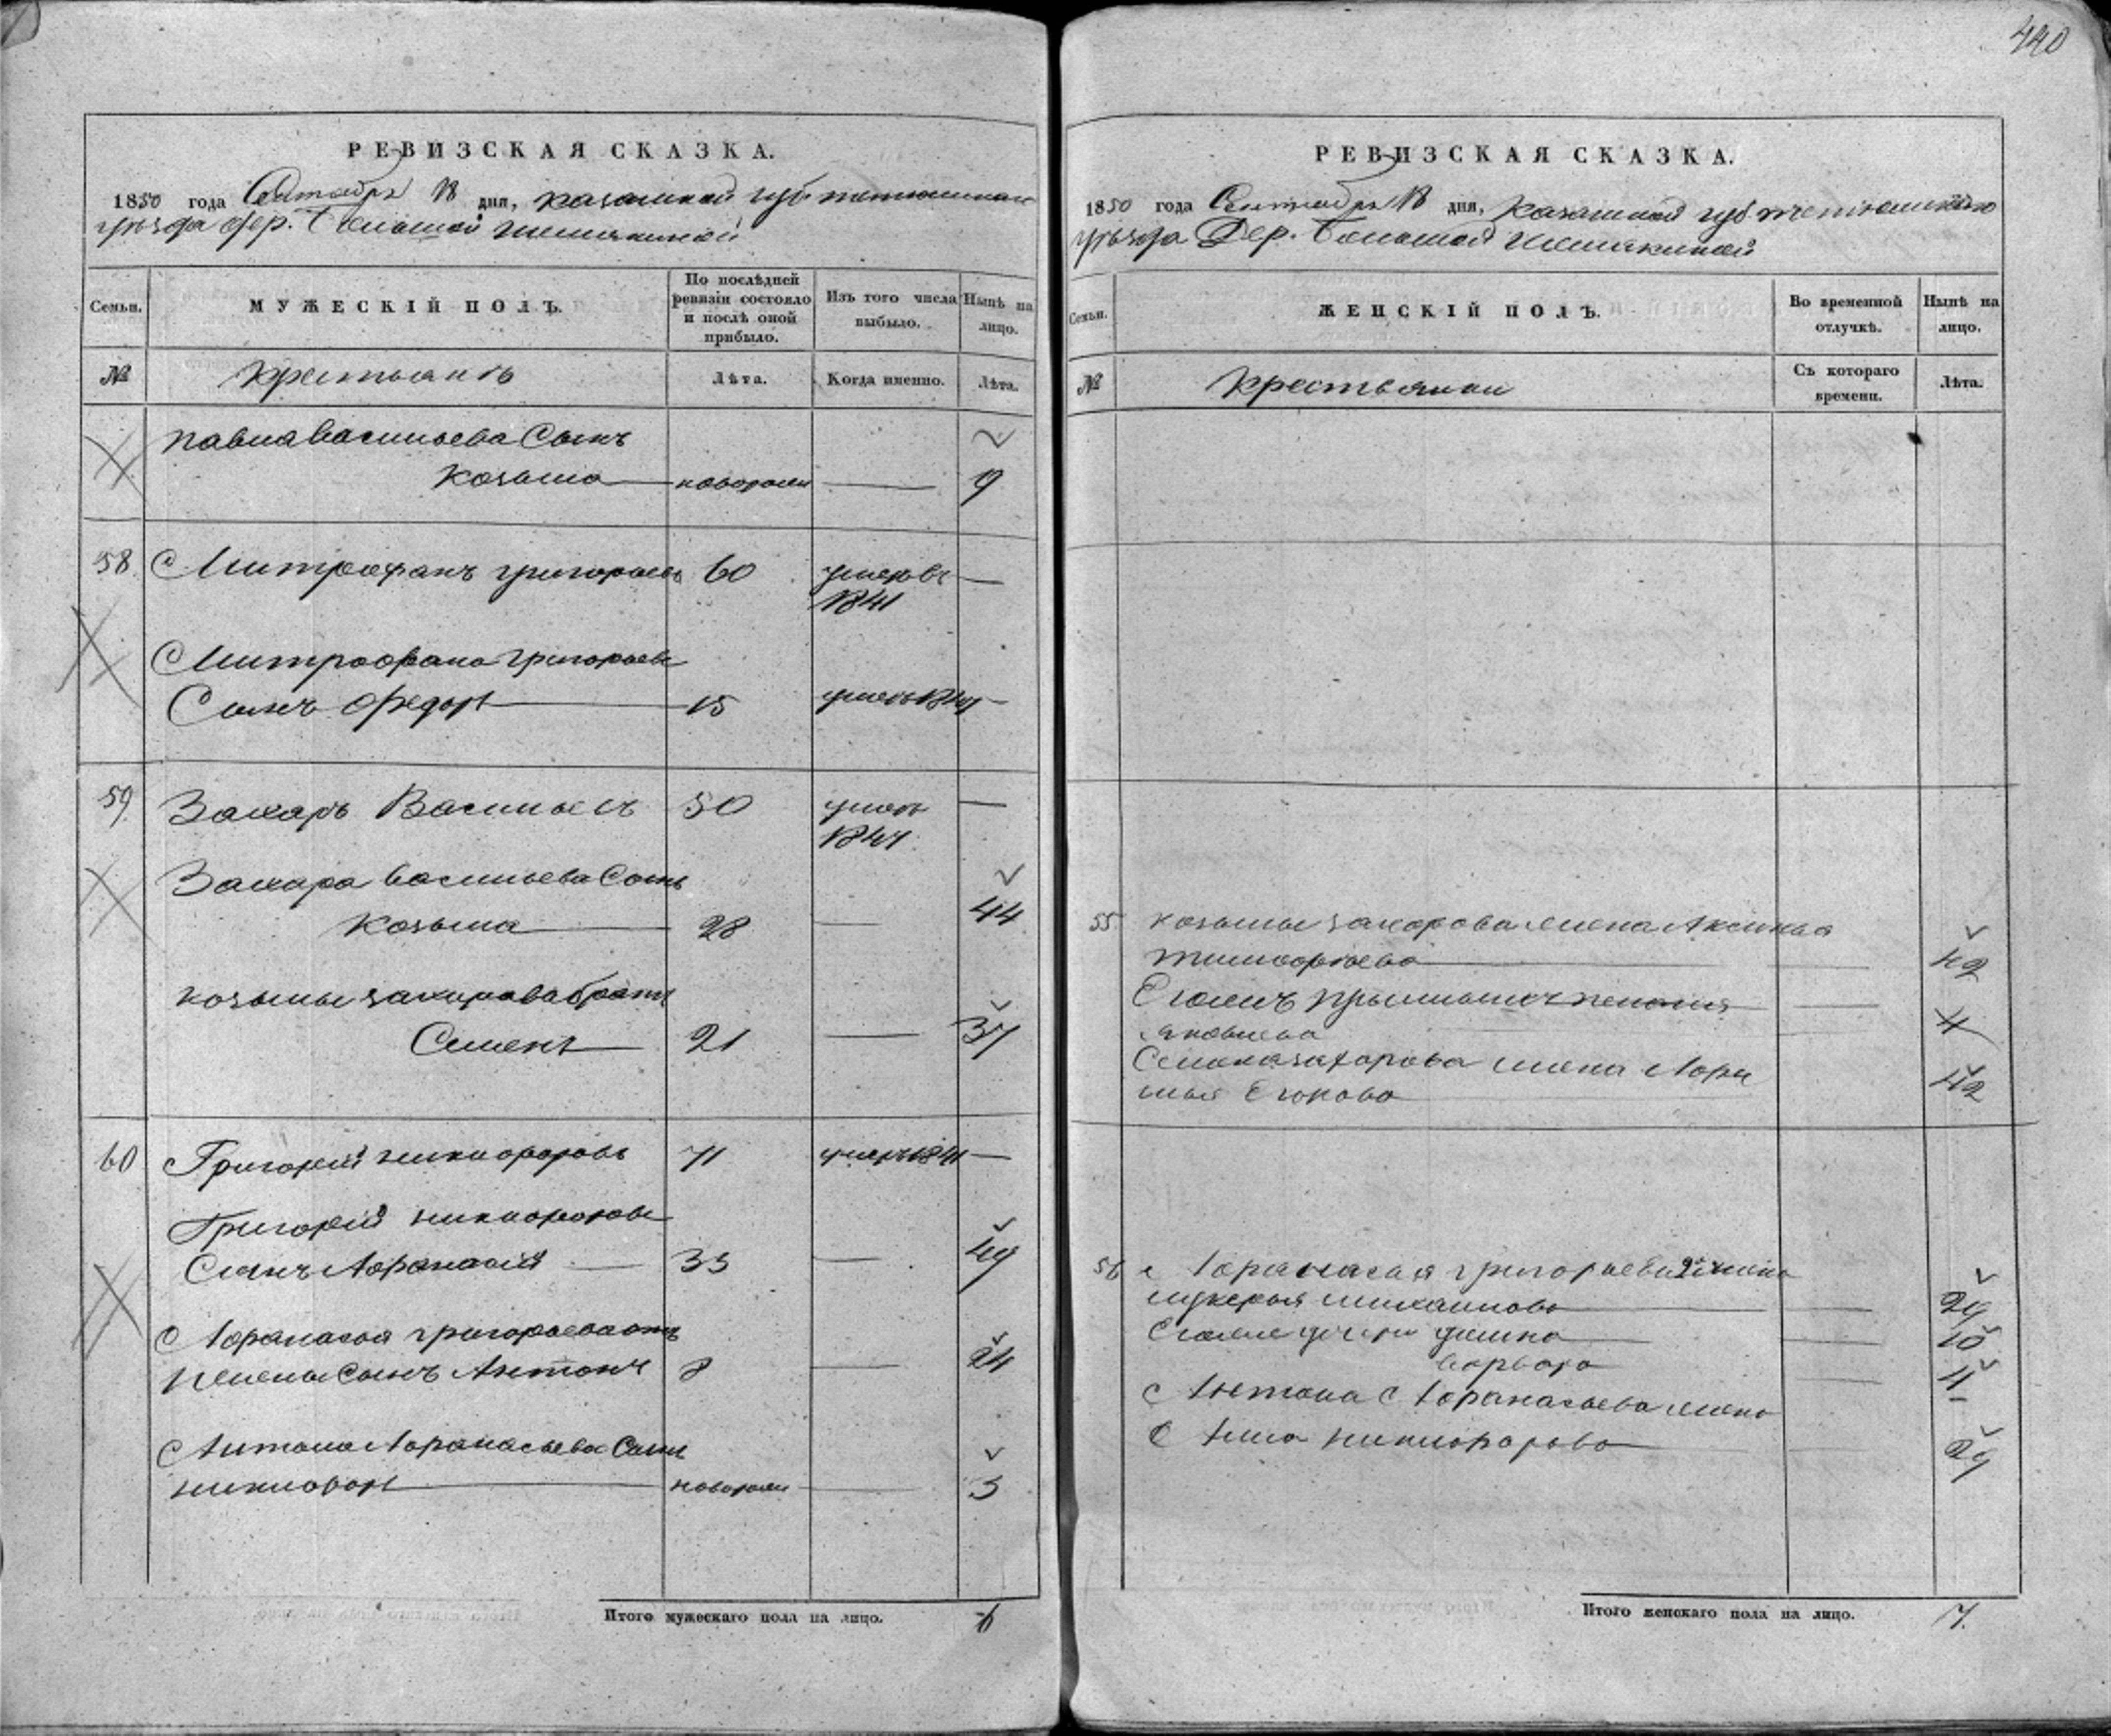 440
РЕВИЗСКАЯ СКАЗКА.
1850 года Сентября 18 дня, казанской губ тетюшскаго
уѣзда дер. Большой шемякиной
Семьи. МУЖЕСКІЙ ПОЛЪ. По послѣдней ревизіи состояло и послѣ оной прибыло. Изъ того числа выбыло. Нынѣ на лицо.
№ крестьянъ Лѣта. Когда именно. Лѣта.
павла васильева Сынъ
козьма новорожд 9
58 Митрофанъ григорьевъ 60 умеръ въ
1841
Митрофана григорьева
Сынъ федоръ 15 умеръ
59 Захаръ Васильевъ 50 умеръ
Захара васильева Сынъ
козьма 28 44
козьмы захарова братъ
Семенъ 21 37
60 Григорій никифоровъ 71 умеръ 1841
Григорій никифорова
Сынъ Афанасій 35 49
Афанасья григорьева отъ
жены сынъ Антонъ 8 24
Антона Афанасьева Сынъ
никифоръ новорожд 3
Итого мужескаго пола на лицо. 6
РЕВИЗСКАЯ СКАЗКА.
1850 года Сентября 18 дня, казанской губ тетюшскаго
уѣзда Дер. Большой шемякиной
Семьи. ЖЕНСКІЙ ПОЛЪ. Во временной отлучкѣ. Нынѣ на лицо.
№ крестьянки Съ котораго времени. Лѣта.
55 козьмы захарова жена Аксинья
тимофеева 42
яковлева 4
Семена захарова жена Дарья
Егорова 42
56 Афанасья григорьева 2я жена
лукерья михайлова 29
10
варвара 4
Антона Афанасьева жена
Анна никифорова 29
Итого женскаго пола на лицо. 7.